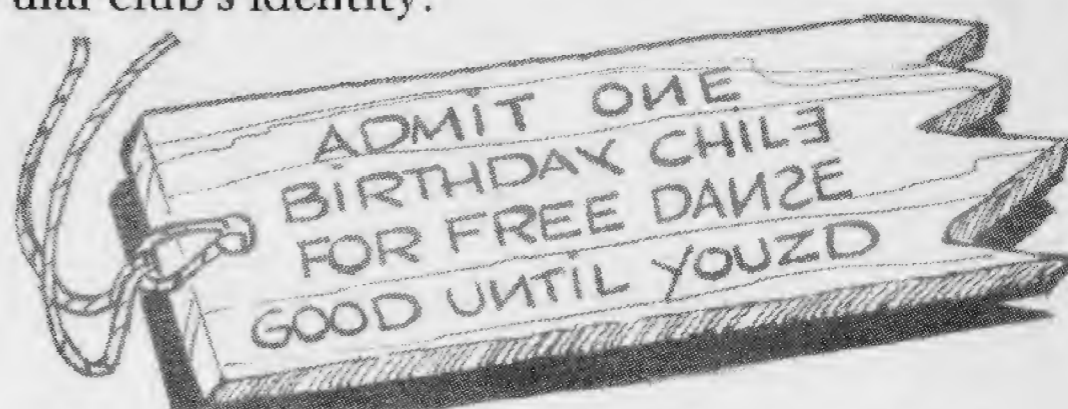 dual club's identity.
ADMIT ONE
BIRTHDAY CHILE
FOR FREE DANSE
GOOD UNTIL YOUZD